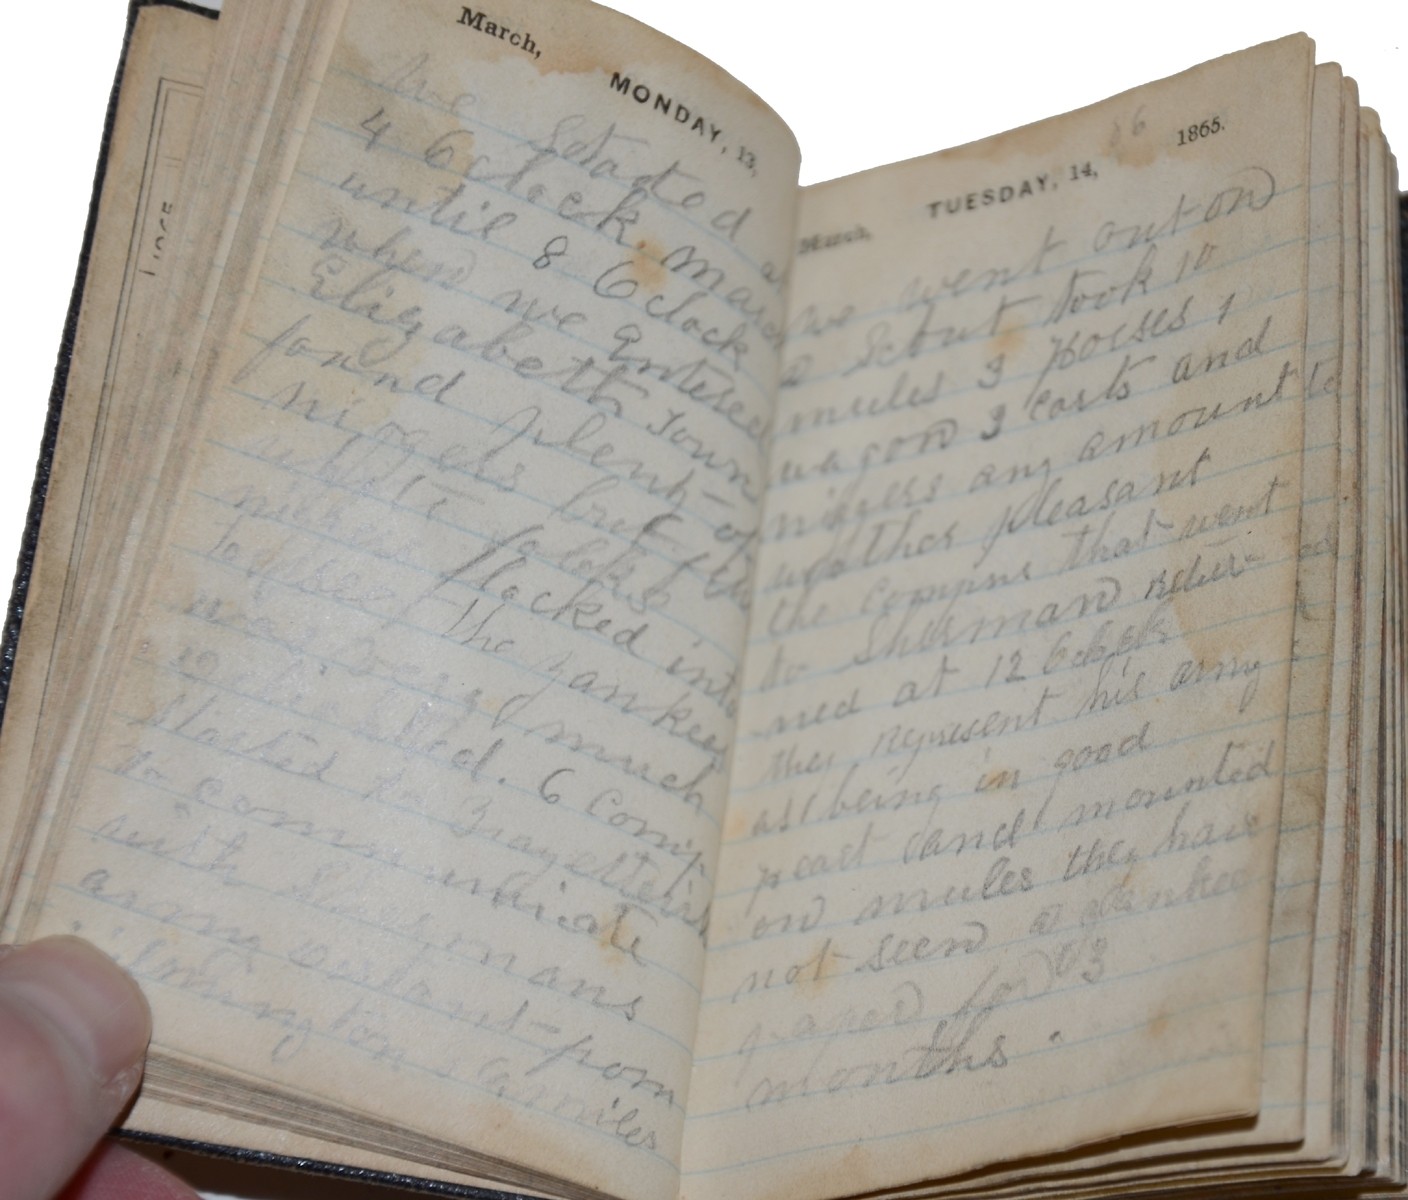 March,
MONDAY, 13,
we Started at
4 Oclock. March
until 8 Oclock
when we entered
Elizabeth Town
found plenty of
nigers but few
white folks
flocked into
to see the yankees
was very much
6 Comp.
Started to Fayettevill
to communicate
with Shermans
army distant from
Wilmington miles
1865.
16
March,
TUESDAY, 14,
we went out on
a Scout took 10
mules 3 horses 1
wagon 3 carts and
nigers any amount to
weather pleasant
the compns that went
to Sherman retur-
ned at 12 Oclock
they represent his army
as being in good
heart and mounted
on mules they have
not seen a yankee
paper for 3
months.